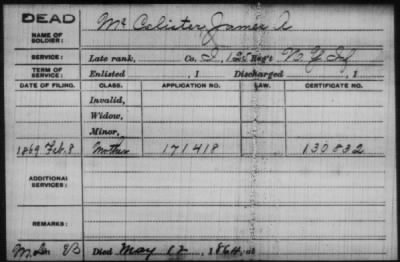 DEAD
NAME OF SOLDIER: Mc Calister, James A
SERVICE: Late rank, Co. I, 125 Reg't N.Y. Inf
TERM OF SERVICE: Enlisted , 1 Discharged , 1
DATE OF FILING. CLASS. APPLICATION NO. LAW. CERTIFICATE NO.
Invalid,
Widow,
Minor,
1869 Feb. 8 Mother 171418 130832
ADDITIONAL SERVICES:
REMARKS:
Died May 12, 1864, at